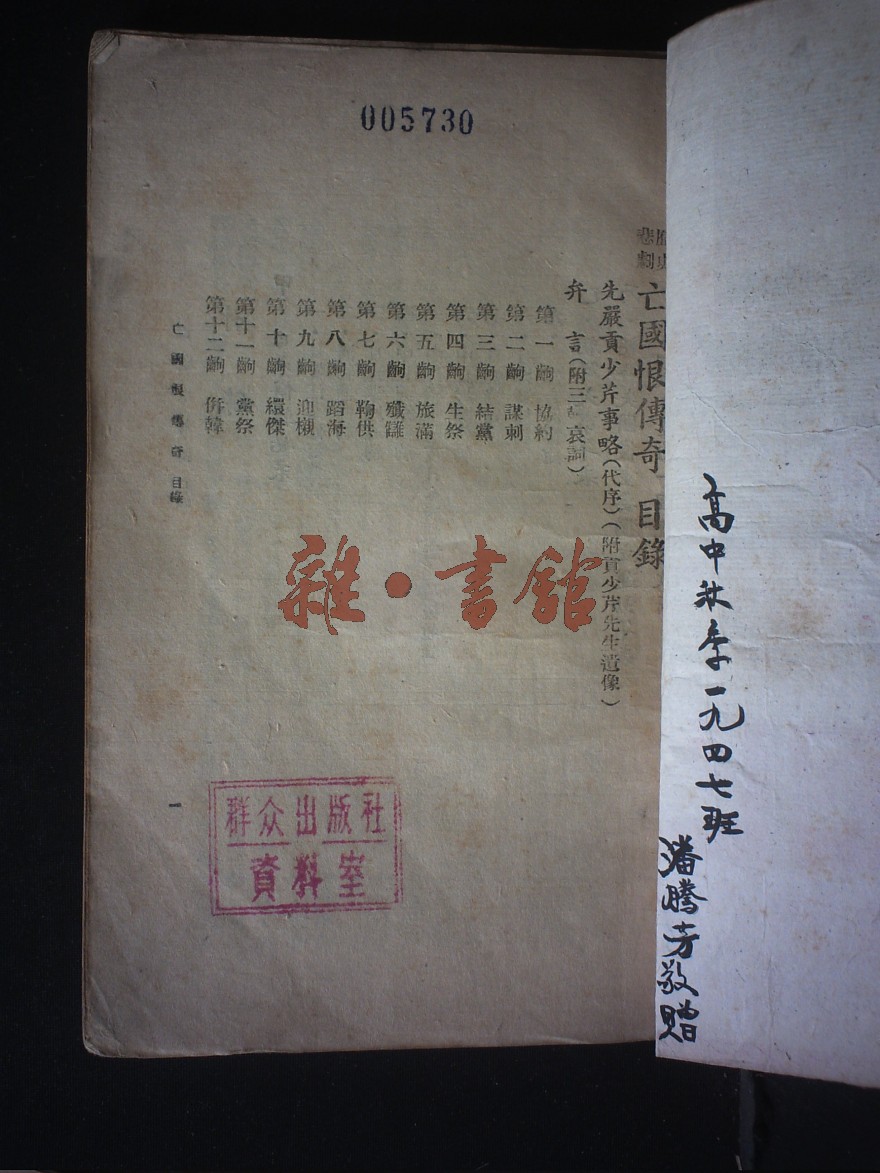 005730
悲劇
亡國恨傳奇 目錄
先嚴貢少芹事略(代序)(附貢少芹先生遺像)
弁言(附三 哀詞)
第一齣 協約
第二齣 謀刺
第三齣 結黨
第四齣 生祭
第五齣 旅滿
第六齣 殲讎
第七齣 鞠供
第八齣 蹈海
第九齣 迎櫬
第十齣 繯傑
第十一齣 黨祭
第十二齣 併韓
亡國恨傳奇 目錄
一
雜·書館
群众出版社
資料室
高中秋季一九四七班
潘騰芳敬贈